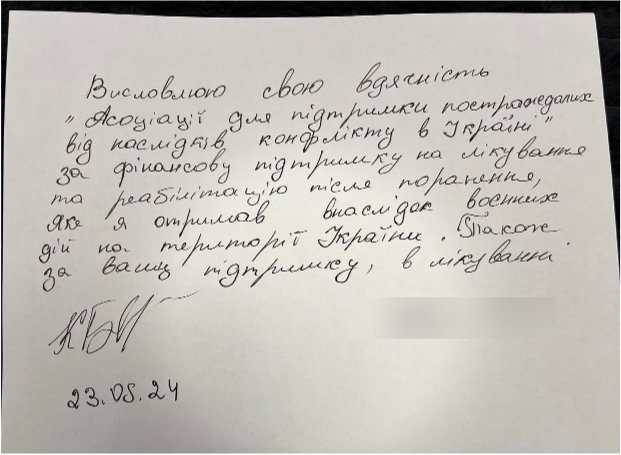 Висловлюю свою вдячність
"Асоціації для підтримки постраждалих
від наслідків конфлікту в Україні"
за фінансову підтримку на лікування
та реабілітацію після поранення,
яке я отримав внаслідок воєнних
дій на території України. Також
за вашу підтримку, в лікуванні.
23.05.24